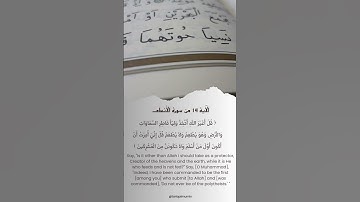 نَسِيَا حُوتَهُمَا
الآية 14 من سورة الأنعام
﴿ قُلْ أَغَيْرَ اللَّهِ أَتَّخِذُ وَلِيًّا فَاطِرِ السَّمَاوَاتِ
وَالْأَرْضِ وَهُوَ يُطْعِمُ وَلَا يُطْعَمُ قُلْ إِنِّي أُمِرْتُ أَنْ
أَكُونَ أَوَّلَ مَنْ أَسْلَمَ وَلَا تَكُونَنَّ مِنَ الْمُشْرِكِينَ ﴾
Say, "Is it other than Allah I should take as a protector,
Creator of the heavens and the earth, while it is He
who feeds and is not fed?" Say, [O Muhammad],
"Indeed, I have been commanded to be the first
[among you] who submit [to Allah] and [was
commanded], 'Do not ever be of the polytheists.' "